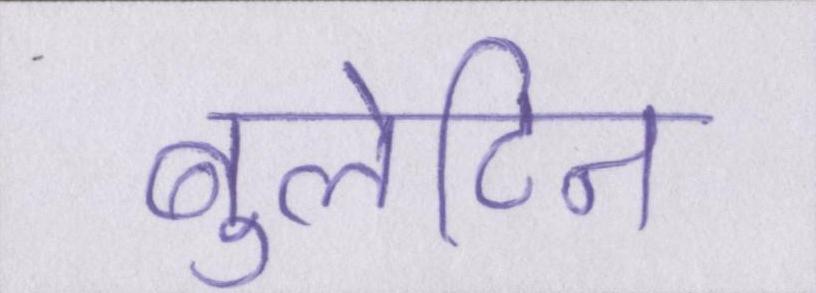 बुलेटिन